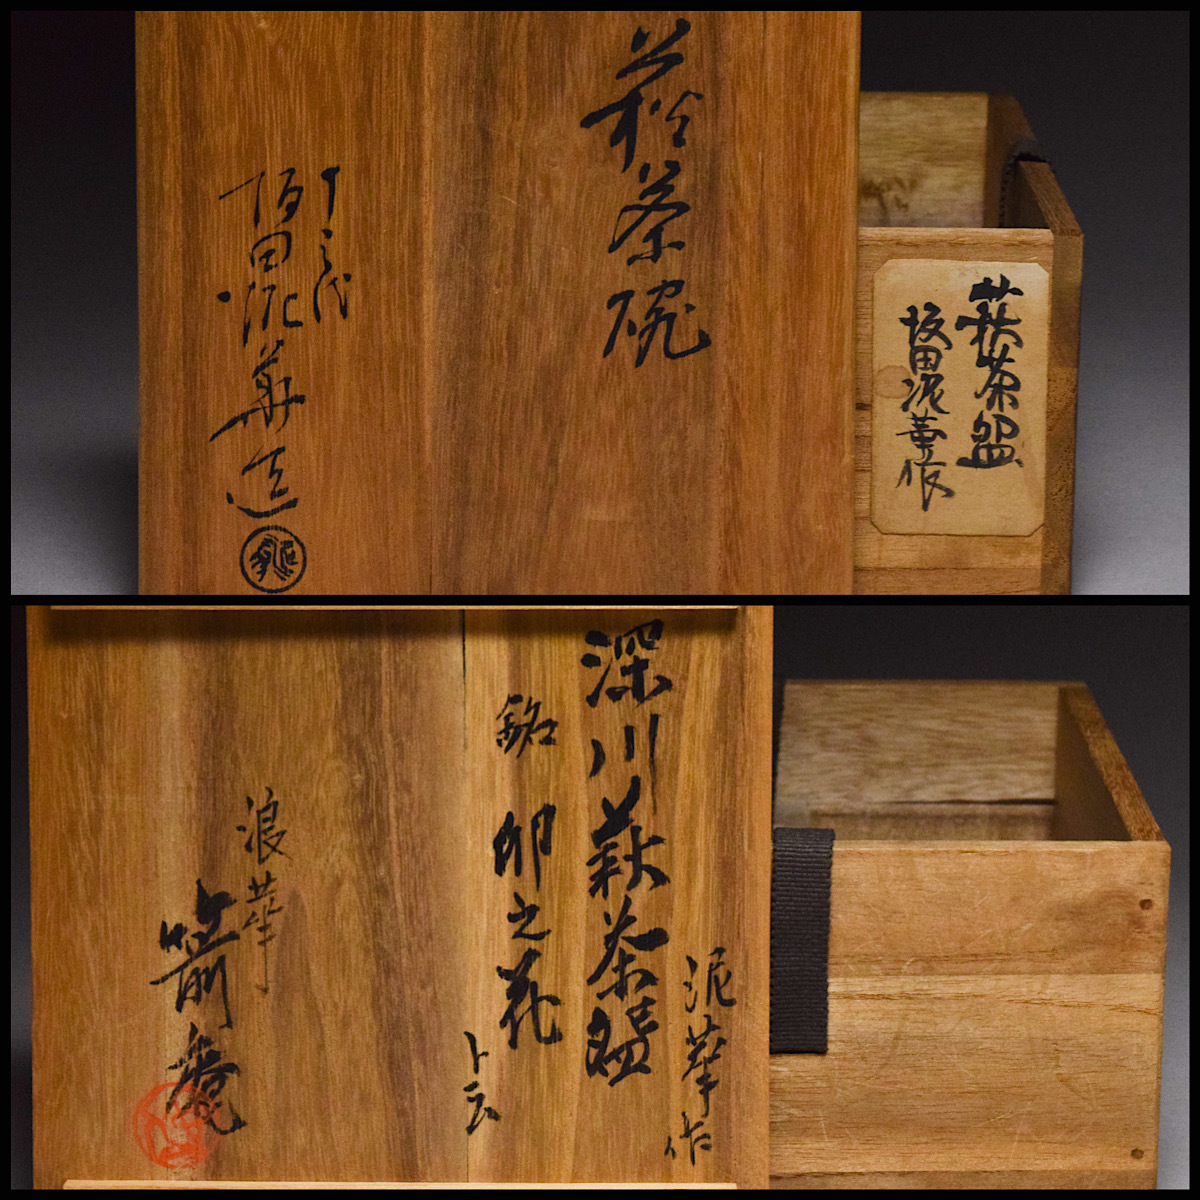 萩茶碗
十三代
坂田泥華造
萩茶盌
坂田泥華作
泥華作
深川萩茶盌
銘 卯之花
ト云
浪華
箭庵